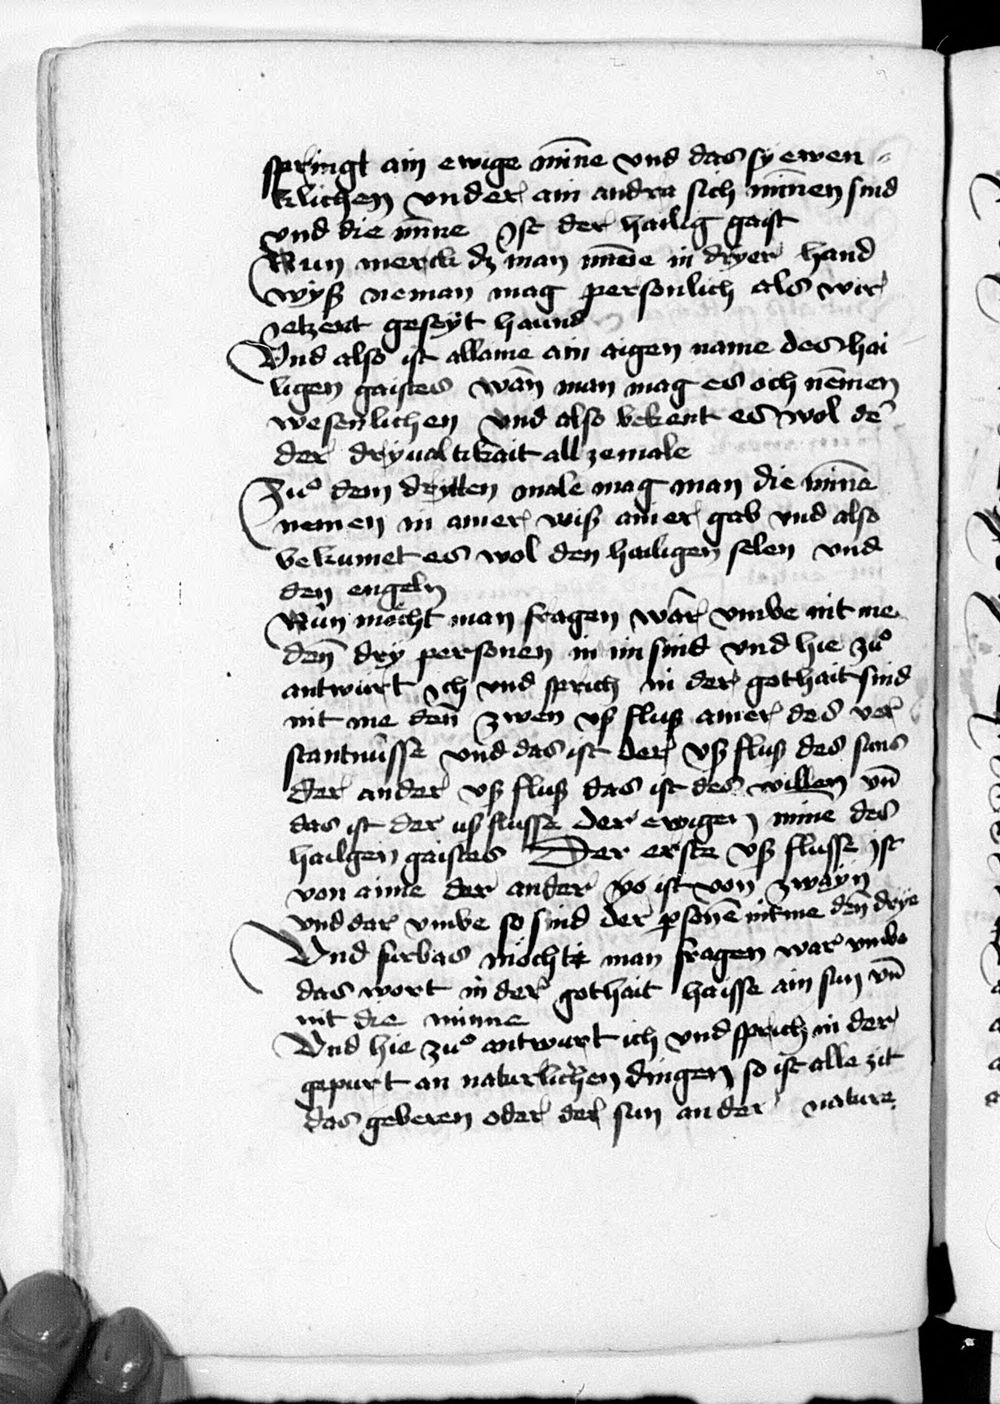 springt ain ewige mīne vnd das sy ewen =
klichen vnder ain andra sich mīnen sind
vnd die mīne Ist der hailig gaist
Nun merck dz man mīne in dryer hand
wyß neman mag personlich als wir
ietzent geseyt haund
Vnd also ist allaine ain aigen name des hai
ligen gaistes wān man mag es och nēmen
wesenlichen vnd also bekent es wol dē
der dryualtikait all zemale
Zuͦ dem dritten male mag man die mīne
nemen in ainer wiß ainer gab vnd also
bekumet es wol den hailigen selen vnd
den engeln
Nūn möcht man fragen wār vmbe nit me
deñ dry personen in im sind vnd hie zuͦ
antwurt ich vnd sprich in der gothait sind
nit me deñ zwen vß fluß ainer des ver
stantnüsse vnd das ist der vß fluß des suns
der ander vß fluß das ist des willen vn̄
das ist der uß flusse der ewigen mine des
hailgen gaistes Der erste vß flusse ist
von aime der ander ist von zwayn
vnd dar vmbe so sind der psonē nit me deñ drye
Vnd furbas möchte man fragen war vmbe
das wort in der gothait haisse ain sun vn̄
nit die minne
Vnd hie zuͦ antwurt ich vnd sprich in der
gepurt an naturlichen dingen so ist alle zit
das geberen oder der sun an der nature